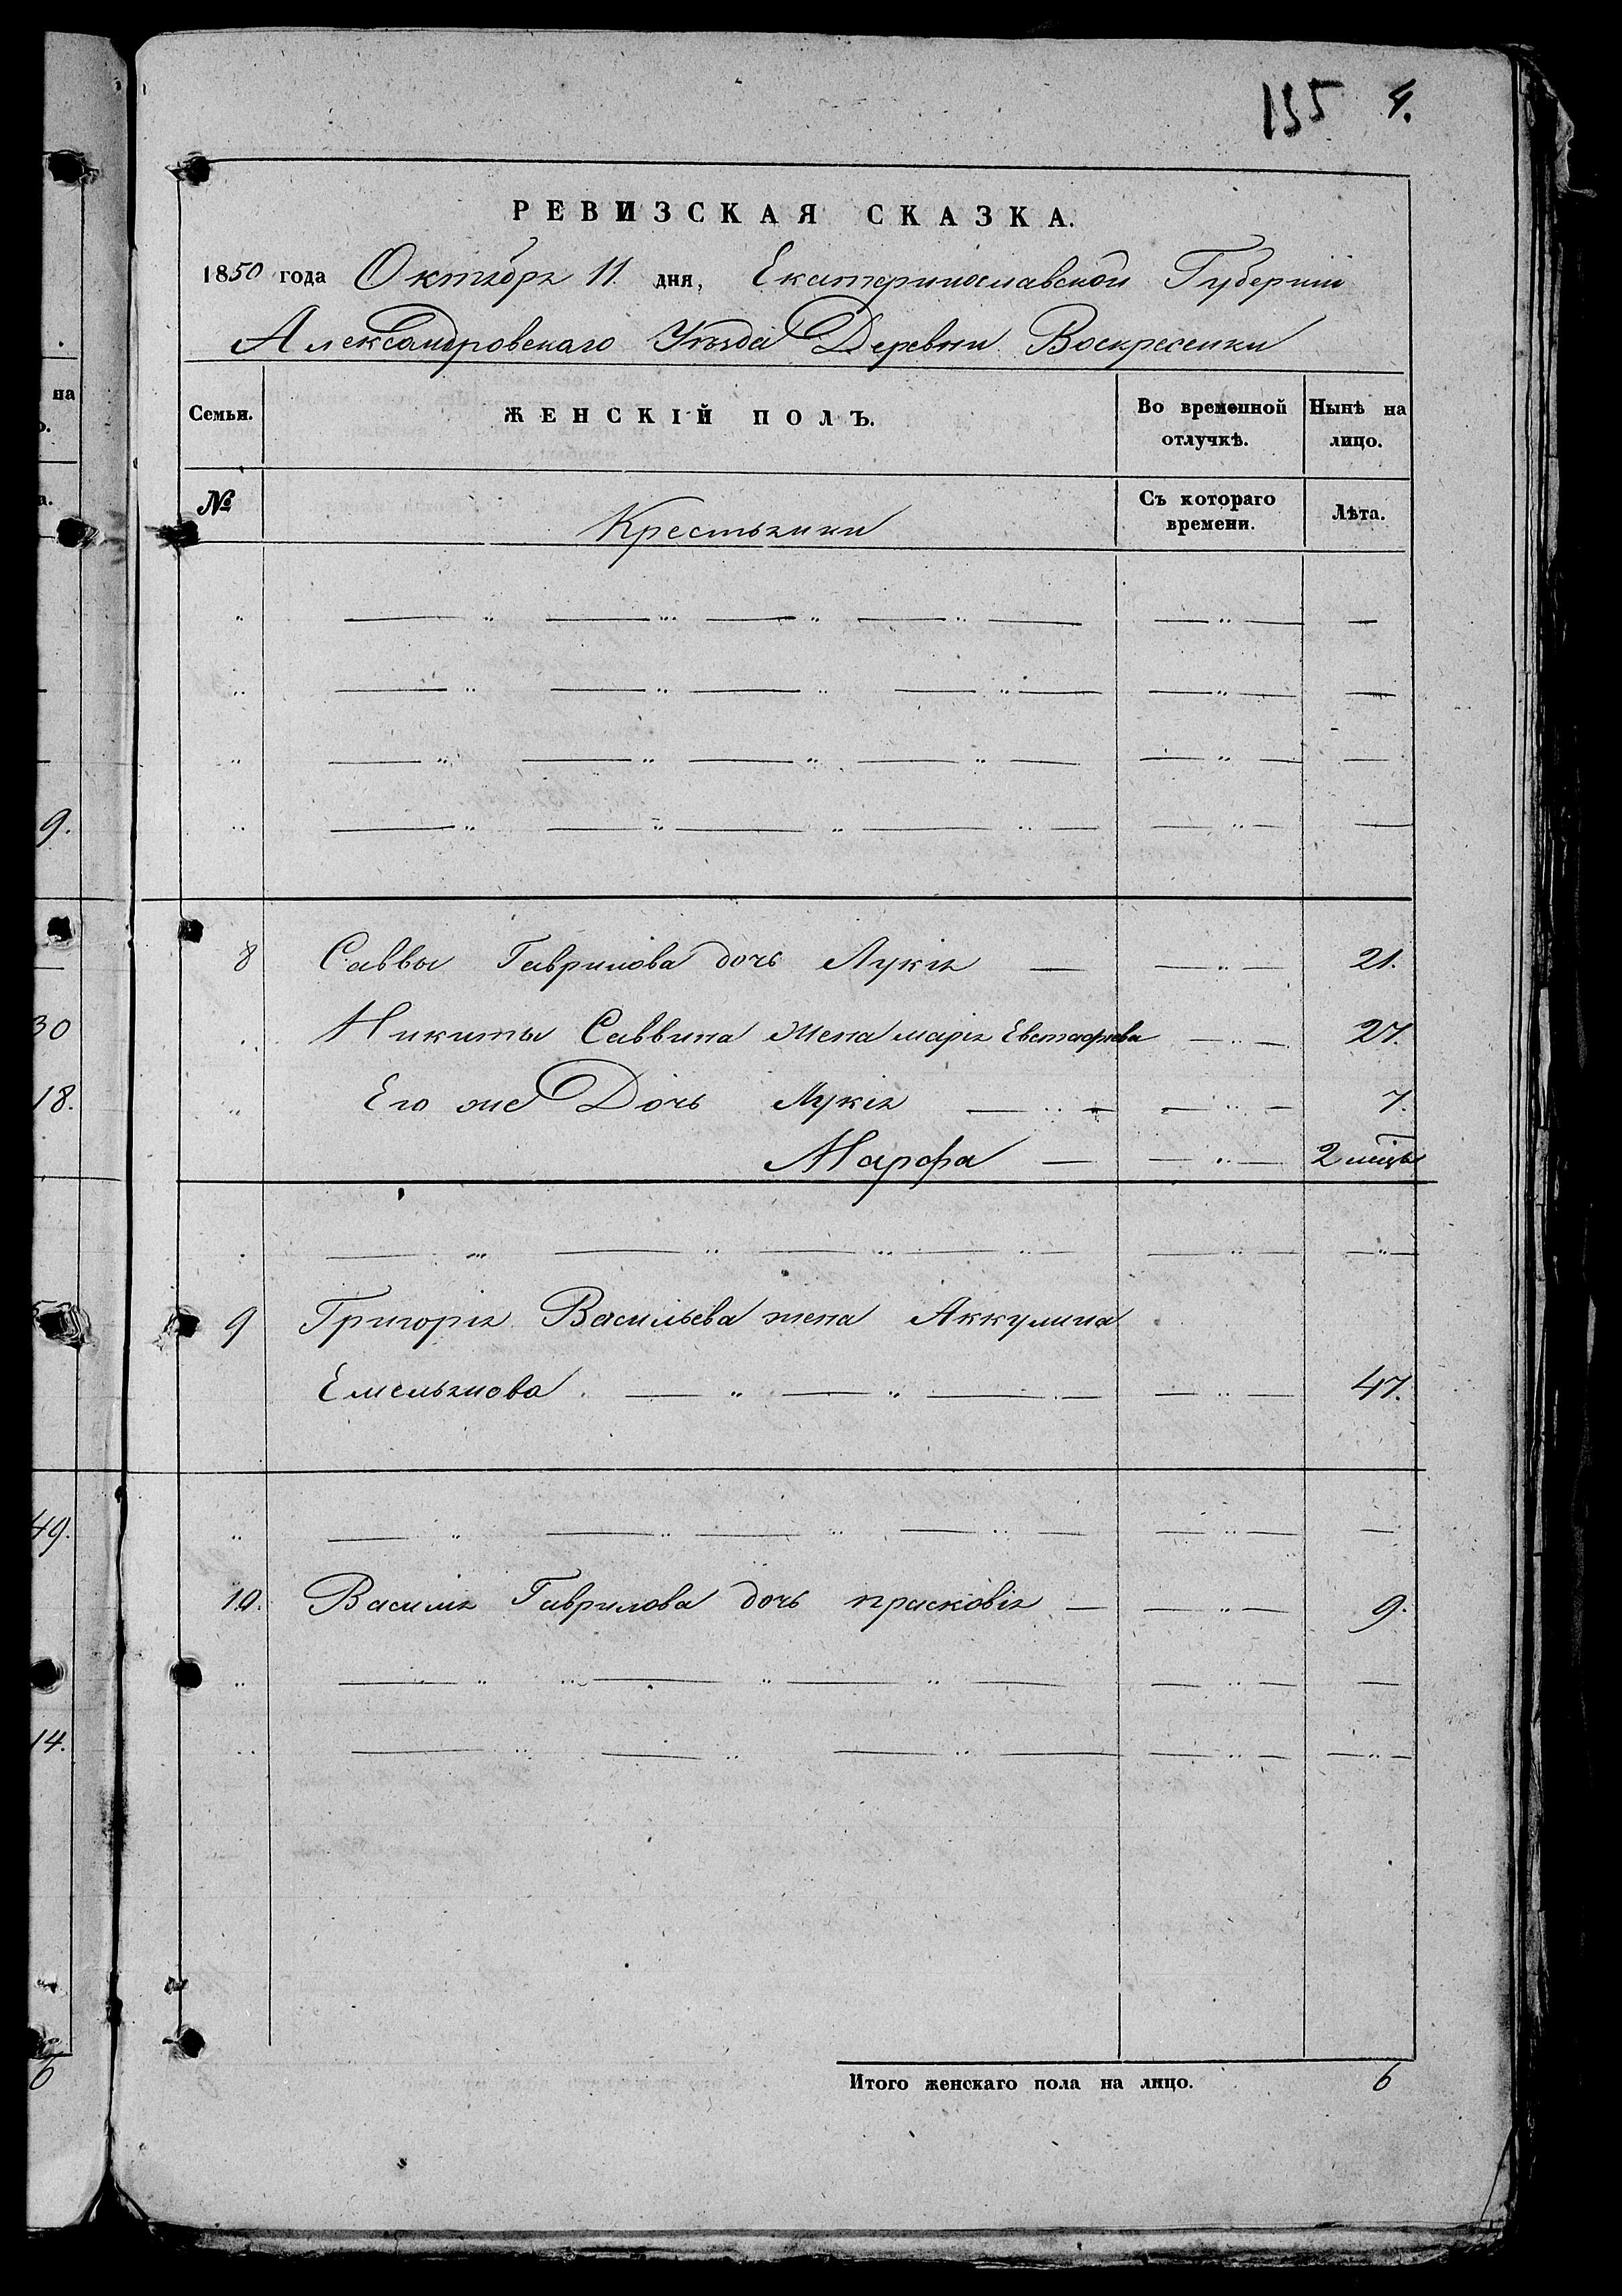 135 4.
РЕВИЗСКАЯ СКАЗКА.
1850 года Октября 11 дня, Екатеринославской Губерніи
Александровскаго Уѣзда Деревни Воскресенки
Семьи. ЖЕНСКІЙ ПОЛЪ. Во временной отлучкѣ. Нынѣ на лицо.
№ Крестьянки Съ котораго времени. Лѣта.
8 Саввы Гаврилова дочь Лукія — — „ — 21.
Никиты Саввина жена марія Евстафіева — „ — 27.
„ Его же Дочь Лукія — „ — — „ — 7.
Марфа — — „ — 2 мѣцы
9 Григорія Васильева жена Аккулина
Емельянова. — „ — „ — — „ — 47.
10. Василія Гаврилова дочь прасковія — — „ — 9.
Итого женскаго пола на лицо. 6
на
9.
30
18.
49.
14.
6